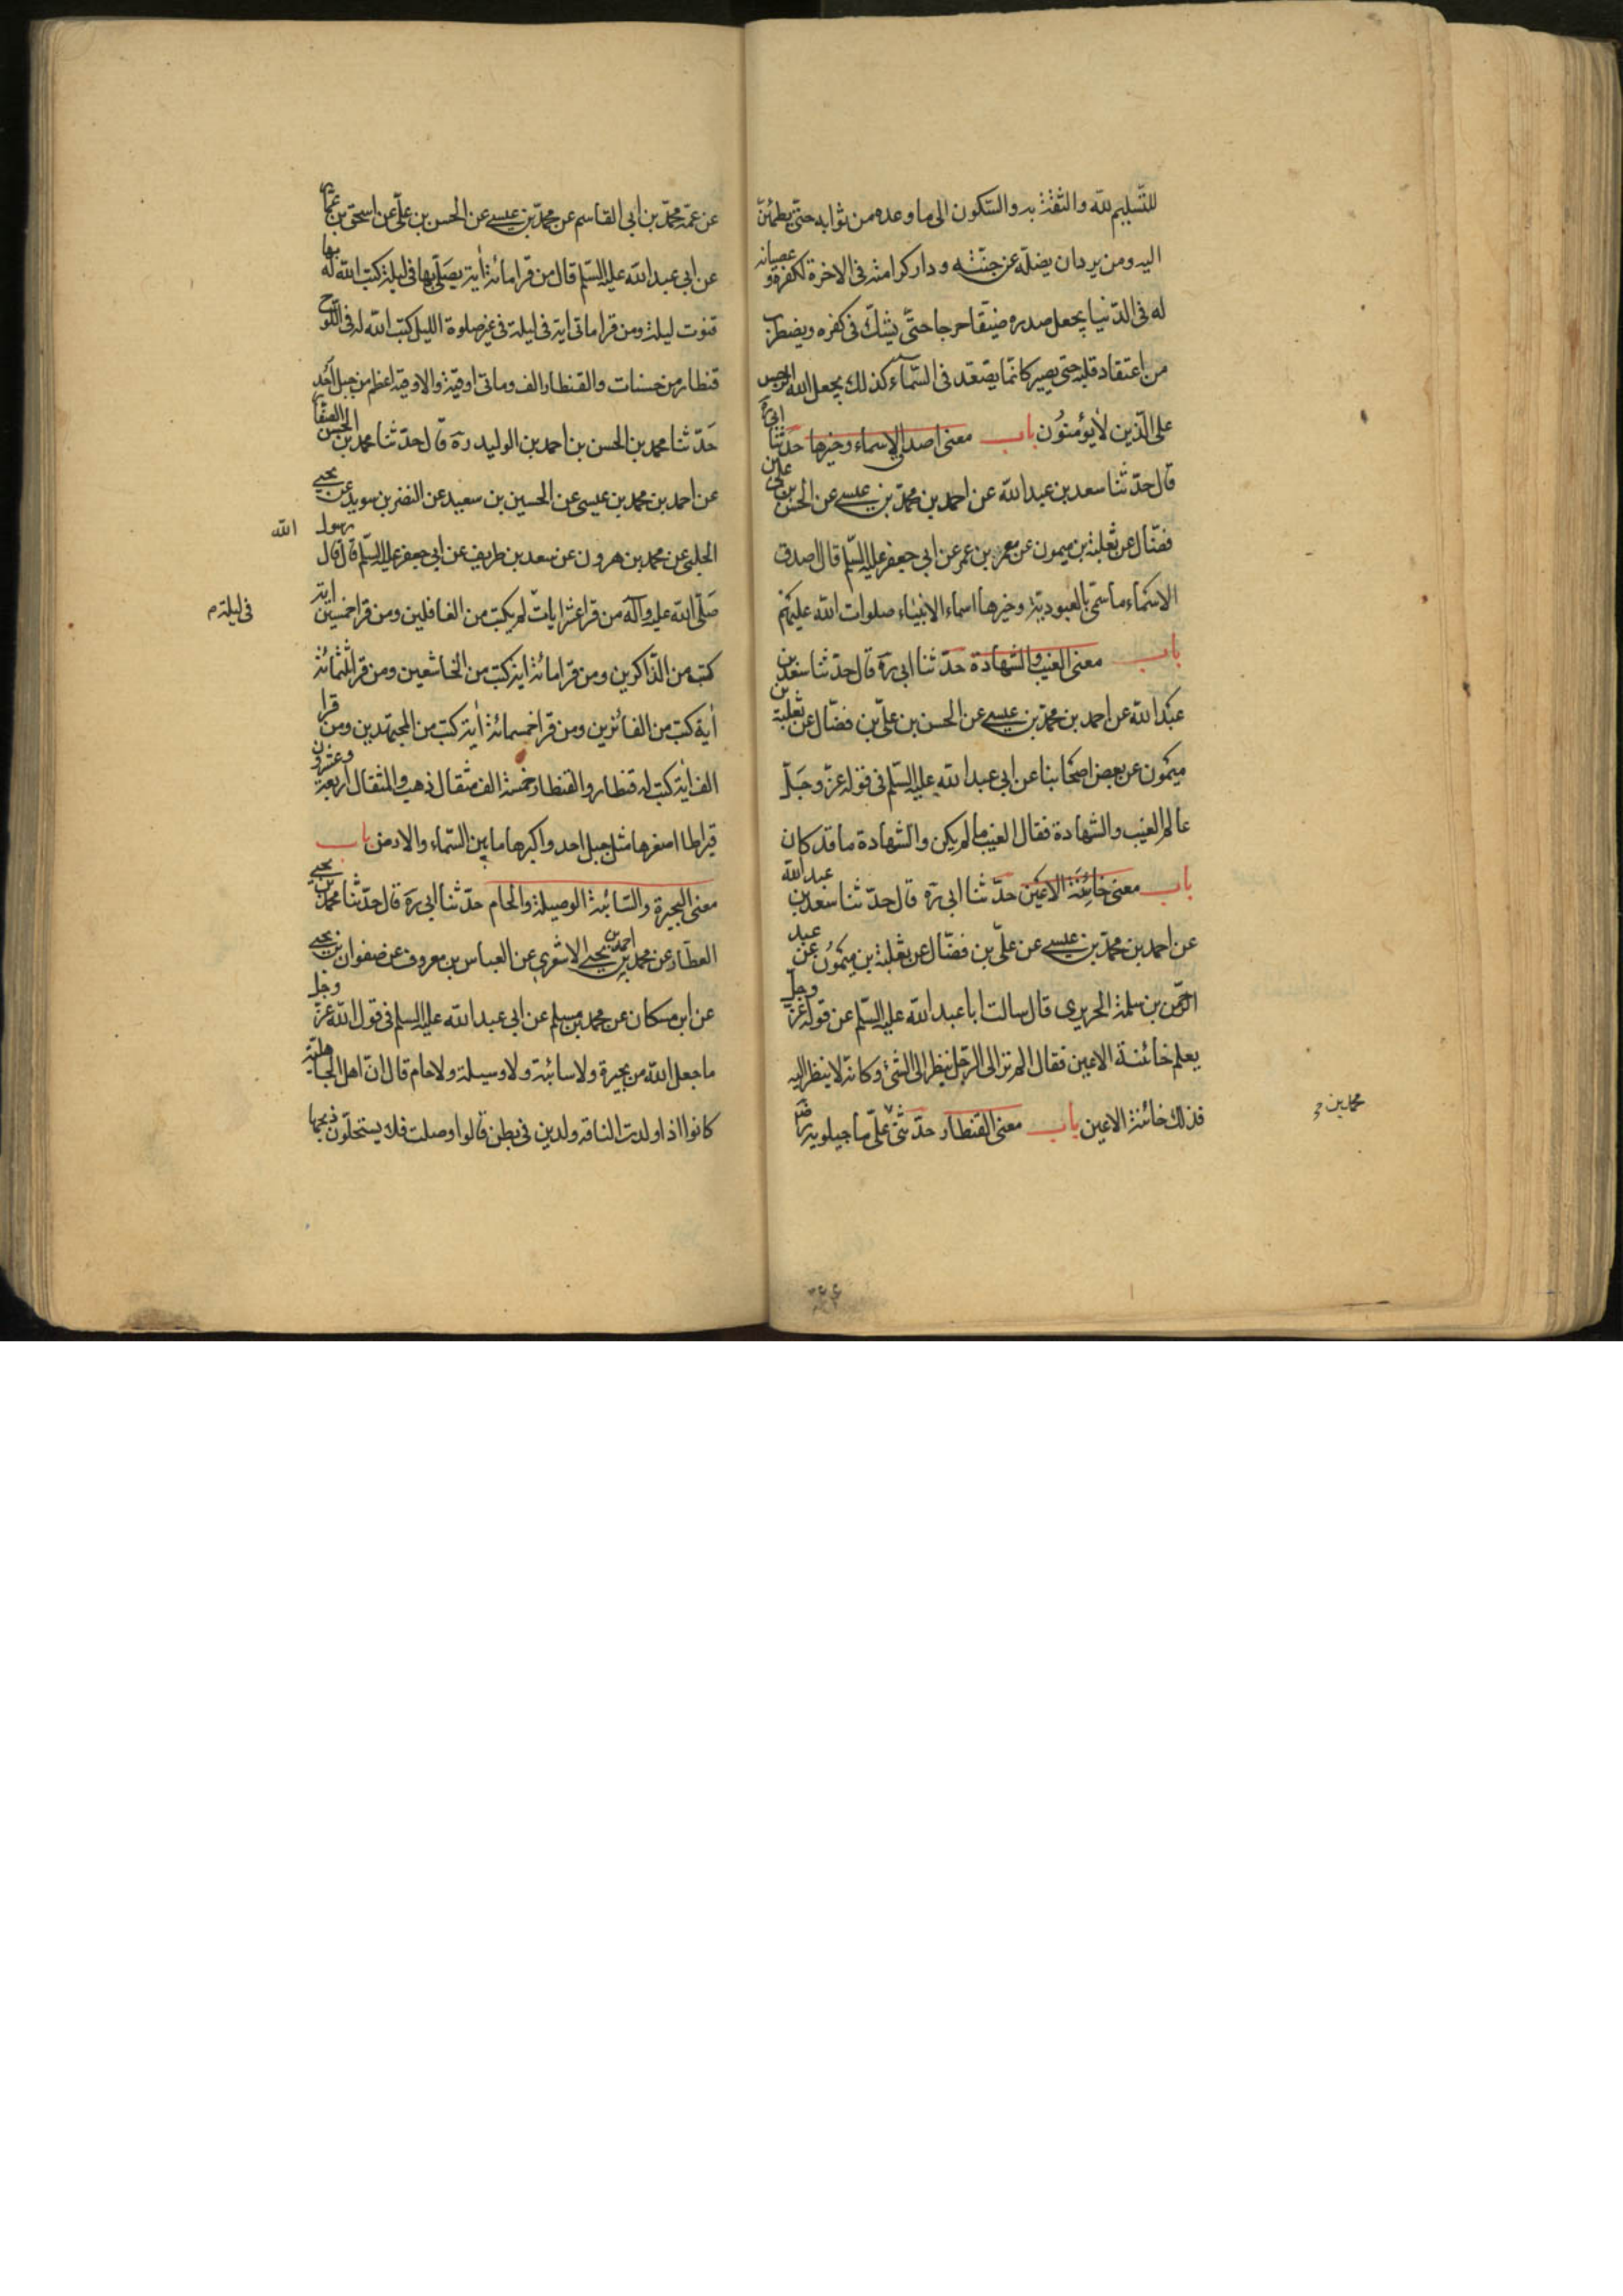 للتسليم لله والثقة به والسكون الى ما وعده من ثوابه حتى يطمئن
اليه ومن يرد ان يضله عن جنته ودار كرامته فى الاخرة لكفره و عصيانه
له فى الدنيا يجعل صدره ضيقا حرجا حتى يشك فى كفره ويضطرب
من اعتقاد قلبه حتى يصير كانما يصعد فى السماء كذلك يجعل الله الرجس
على الذين لا يؤمنون باب معنى اصدق الاسماء وخيرها حدثنا ابى ره
قال حدثنا سعد بن عبد الله عن احمد بن محمد بن عيسى عن الحسن بن على بن
فضال عن ثعلبة بن ميمون عن معمر بن عمر عن ابى جعفر عليه السلم قال اصدق
الاسماء ما سمى بالعبودية وخيرها اسماء الانبياء صلوات الله عليهم
باب معنى الغيب والشهادة حدثنا ابى ره قال حدثنا سعد بن
عبد الله عن احمد بن محمد بن عيسى عن الحسن بن على بن فضال عن ثعلبة بن
ميمون عن بعض اصحابنا عن ابى عبد الله عليه السلم فى قوله عز وجل
عالم الغيب والشهادة فقال الغيب ما لم يكن والشهادة ما قد كان
باب معنى خائنة الاعين حدثنا ابى ره قال حدثنا سعد بن عبد الله
عن احمد بن محمد بن عيسى عن على بن فضال عن ثعلبة بن ميمون عن عبد
الرحمن بن سلمة الحريرى قال سالت ابا عبد الله عليه السلم عن قوله عز وجل
يعلم خائنة الاعين فقال الم تر الى الرجل ينظر الى الشئ وكانه لا ينظر اليه
فذلك خائنة الاعين باب معنى القنطار حدثنى على ماجيلويه رض
محمد بن
عن عمه محمد بن ابى القاسم عن محمد بن عيسى عن الحسن بن على عن اسحق بن عمار
عن ابى عبد الله عليه السلم قال من قرا مائة اية يصلى بها فى ليلة كتب الله له بها
قنوت ليلة ومن قرا ماتى اية فى ليلة فى غير صلوة الليل كتب الله له فى اللوح
قنطار من حسنات والقنطار الف وماتى اوقية والاوقية اعظم من جبل احد
حدثنا محمد بن الحسن بن احمد بن الوليد ره قال حدثنا محمد بن الحسن الصفار
عن احمد بن محمد بن عيسى عن الحسين بن سعيد عن النضر بن سويد عن يحيى
الحلبى عن محمد بن هرون عن سعد بن طريف عن ابى جعفر عليه السلم قال قال رسول الله
صلى الله عليه وآله من قرا عشر ايات لم يكتب من الغافلين ومن قرا خمسين اية
فى ليلة م
كتب من الذاكرين ومن قرا مائة اية كتب من الخاشعين ومن قرا ثلثمائة
اية كتب من الفائزين ومن قرا خمسمائة اية كتب من المجتهدين ومن قرا
الف اية كتب له قنطار والقنطار خمسة الف مثقال ذهب والمثقال اربعة وعشرون
قيراطا اصغرها مثل جبل احد واكبرها ما بين السماء والارض باب
معنى البحيرة والسائبة الوصيلة والحام حدثنا ابى ره قال حدثنا محمد بن يحيى
العطار عن محمد بن احمد بن يحيى الاشعرى عن العباس بن معروف عن صفوان بن يحيى
عن ابن مسكان عن محمد بن مسلم عن ابى عبد الله عليه السلم فى قول الله عز وجل
ما جعل الله من بحيرة ولا سائبة ولا وسيلة ولا حام قال ان اهل الجاهلية
كانوا اذا ولدت الناقة ولدين فى بطن قالوا وصلت فلا يستحلون ذبحها